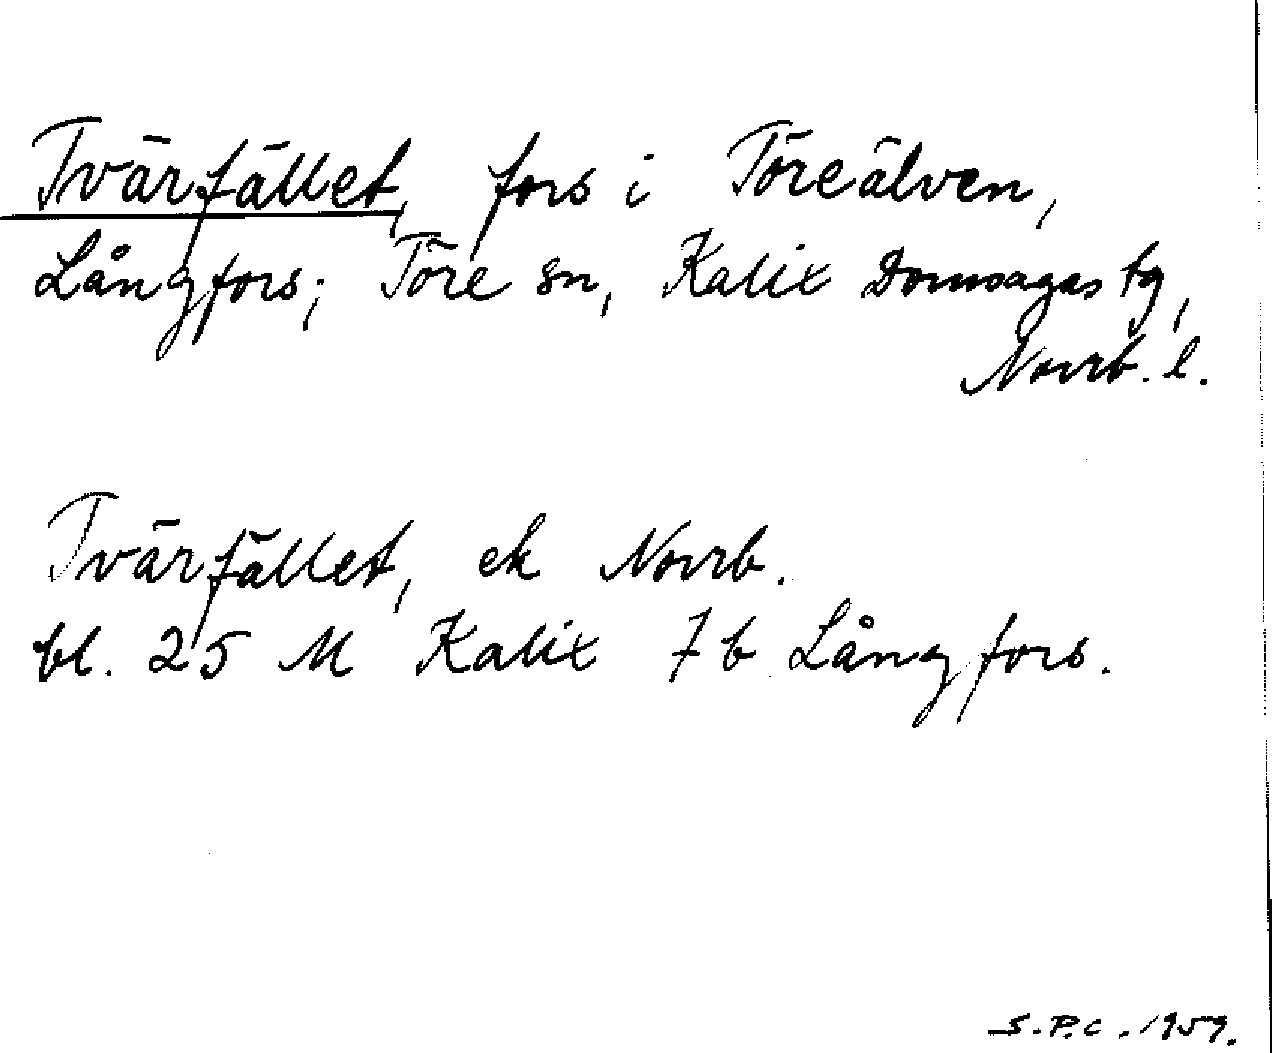 Tvärfället, fors i Töreälven,
Långfors; Töre sn, Kalix Domsagas tg,
Norrb. l.
Tvärfället, ek Norrb.
bl. 25 M Kalix 7 b Långfors.
S.P.C. 1959.